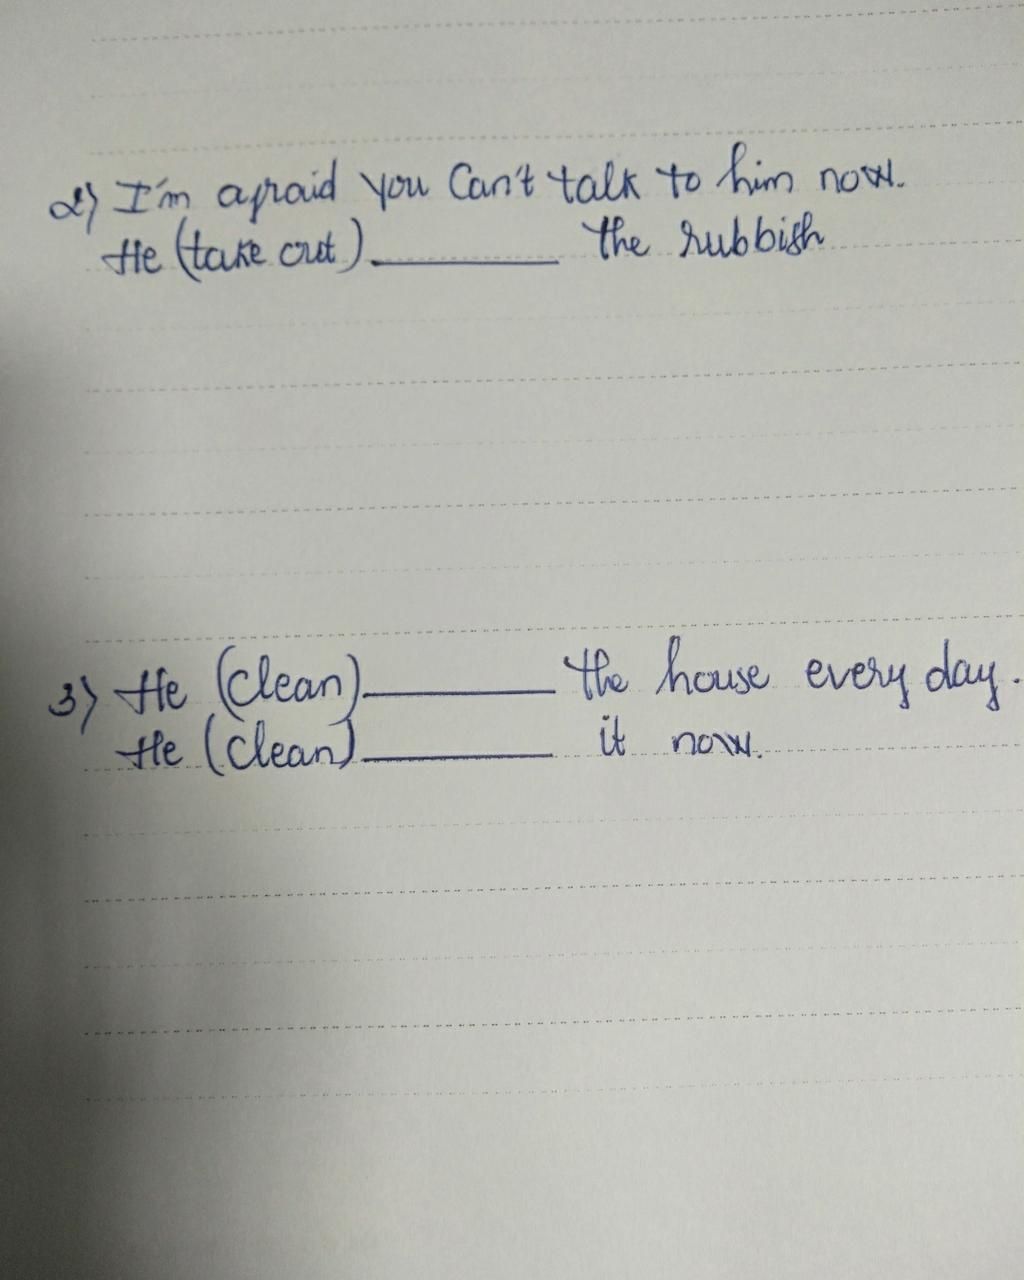 2) I'm afraid you Can't talk to him now.
He (take out) ________ the rubbish
3) He (clean) ________ the house every day.
He (clean) ________ it now.